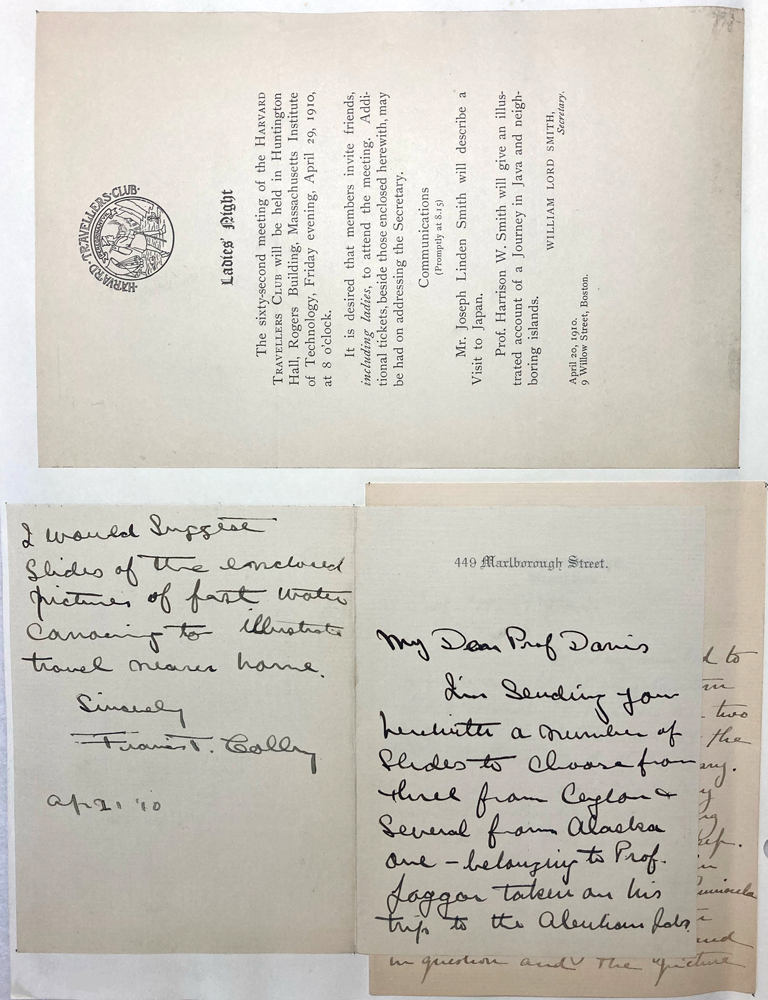 HARVARD · TRAVELLERS · CLUB
Ladies' Night
The sixty-second meeting of the HARVARD
TRAVELLERS CLUB will be held in Huntington
Hall, Rogers Building, Massachusetts Institute
of Technology, Friday evening, April 29, 1910,
at 8 o'clock.
It is desired that members invite friends,
including ladies, to attend the meeting. Addi-
tional tickets, beside those enclosed herewith, may
be had on addressing the Secretary.
Communications
(Promptly at 8.15)
Mr. Joseph Linden Smith will describe a
Visit to Japan.
Prof. Harrison W. Smith will give an illus-
trated account of a Journey in Java and neigh-
boring islands.
WILLIAM LORD SMITH,
Secretary.
April 20, 1910.
9 Willow Street, Boston.
449 Marlborough Street.
My Dear Prof Davis
I'm Sending you
herewith a number of
Slides to choose from
three from Ceylon &
Several from Alaska
one - belonging to Prof.
Jaggar taken on his
trip to the Aleutian Isds.
I would Suggest
Slides of the enclosed
pictures of fast water
Canoeing to illustrate
travel nearer home.
Sincerely
Francis T. Colby
Ap 21 '10
d to
two
the
in question and the picture